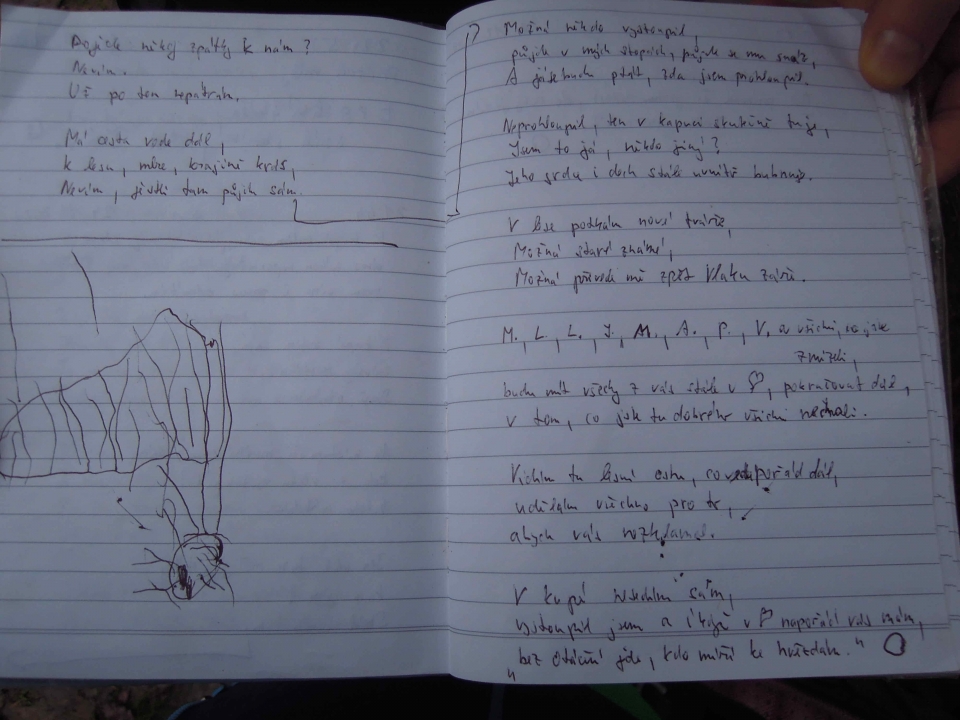 někdy zpátky k nám?
Nevím.
Už po tom nepátrám.
Má cesta vede dál,
k lesu, krajině
Nevím, jestli tam půjdu sám.
Možná někdo vystoupil,
půjde v mých stopách,
A já se budu ptát, zda jsem prohloupil.
Neprohloupil, ten v kapuci skutečně tu je,
Jsem to já, někdo jiný?
Jeho srdce i dech stále
V lese potkám nové tváře,
Možná staré známé,
Možná mě zpět Vlaku záře.
M., L., L., J., M., A., P., V. a všichni, co jste
zmizeli,
budu mít všechny z vás stále v ♡, pokračovat dál,
v tom, co jste tu dobrého všichni nechali.
Vidím tu lesní cestu, co pořád dál,
udělám všechno pro to,
abych vás
V kupé sám,
vystoupil jsem a i když v ♡ napořád vás mám,
„bez otáčení jde, kdo míří ke hvězdám."